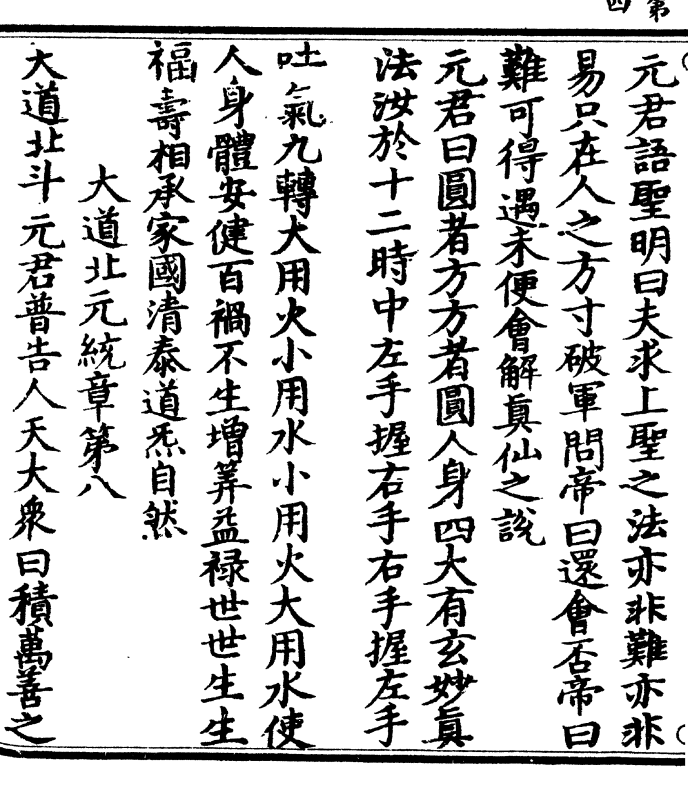 第
四
元君語聖明曰夫求上聖之法亦非難亦非
易只在人之方寸破軍問帝曰還會否帝曰
難可得遇未便會解眞仙之說
元君曰圓者方方者圓人身四大有玄妙眞
法汝於十二時中左手握右手右手握左手
吐氣九轉大用火小用水小用火大用水使
人身體安健百禍不生增筭益禄世世生生
福壽相承家國清泰道炁自然
大道北元統章第八
大道北斗元君普告人天大衆曰積萬善之